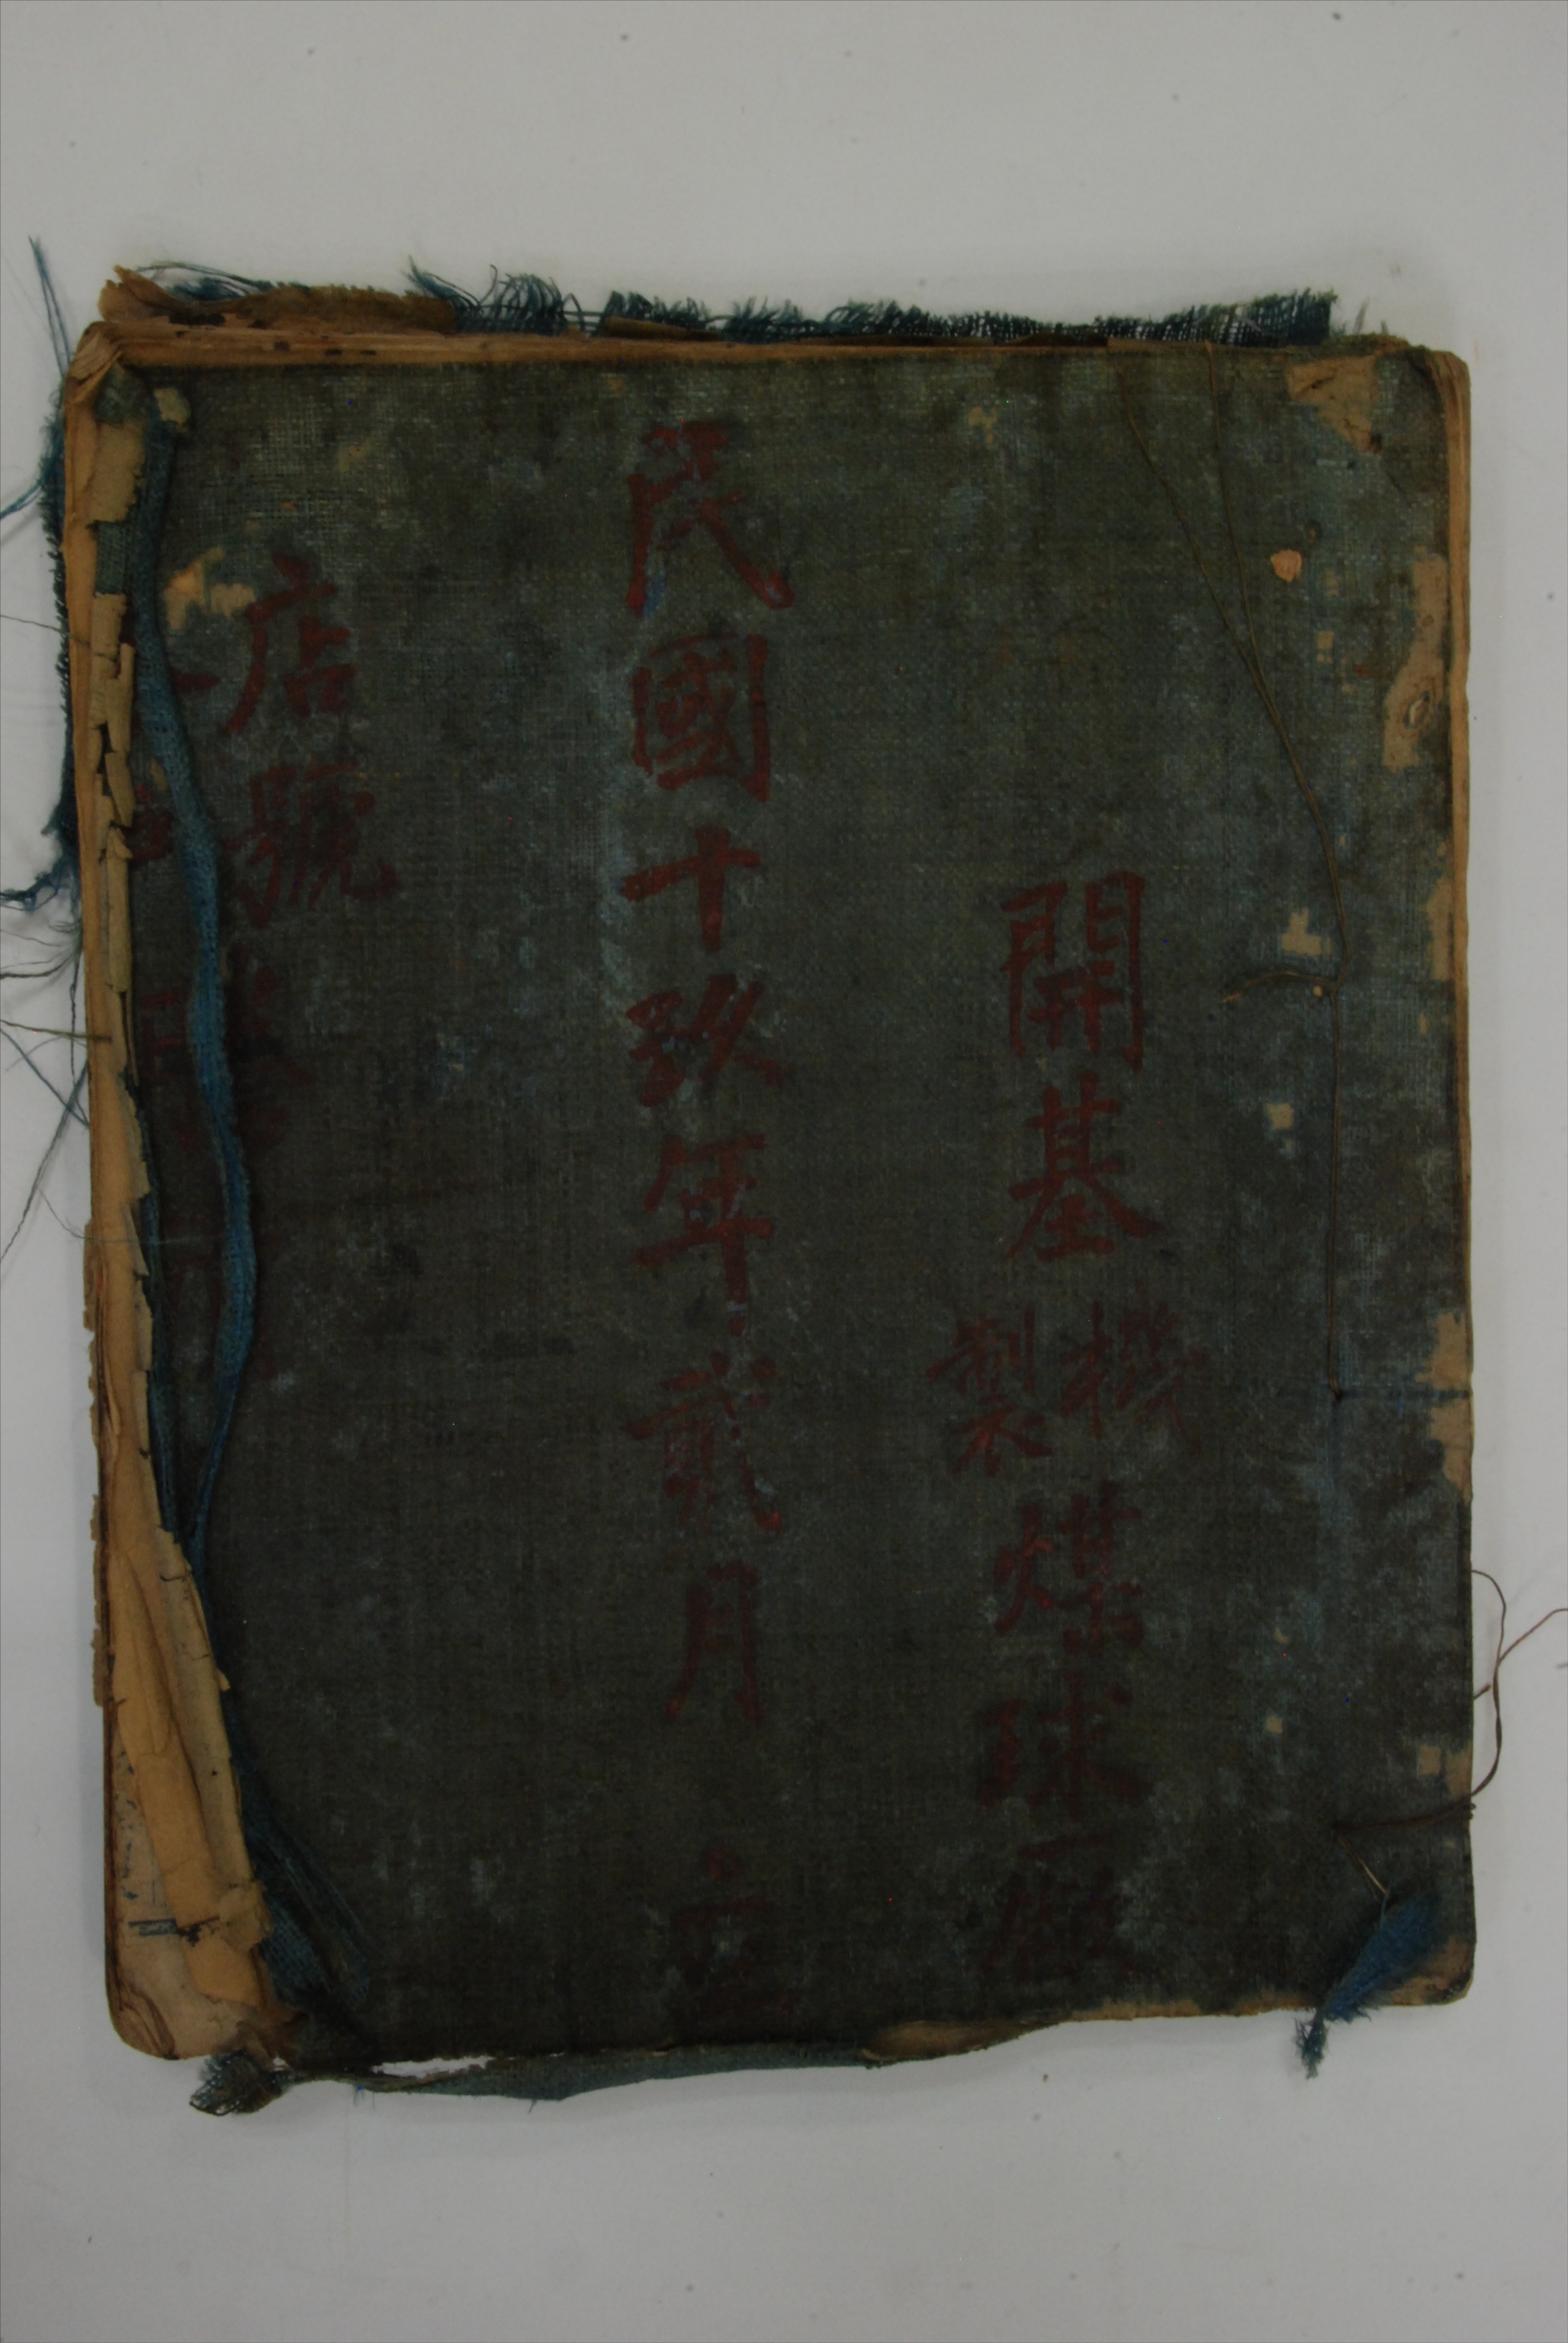 開基機製煤球廠
民國十玖年貳月 立
店號